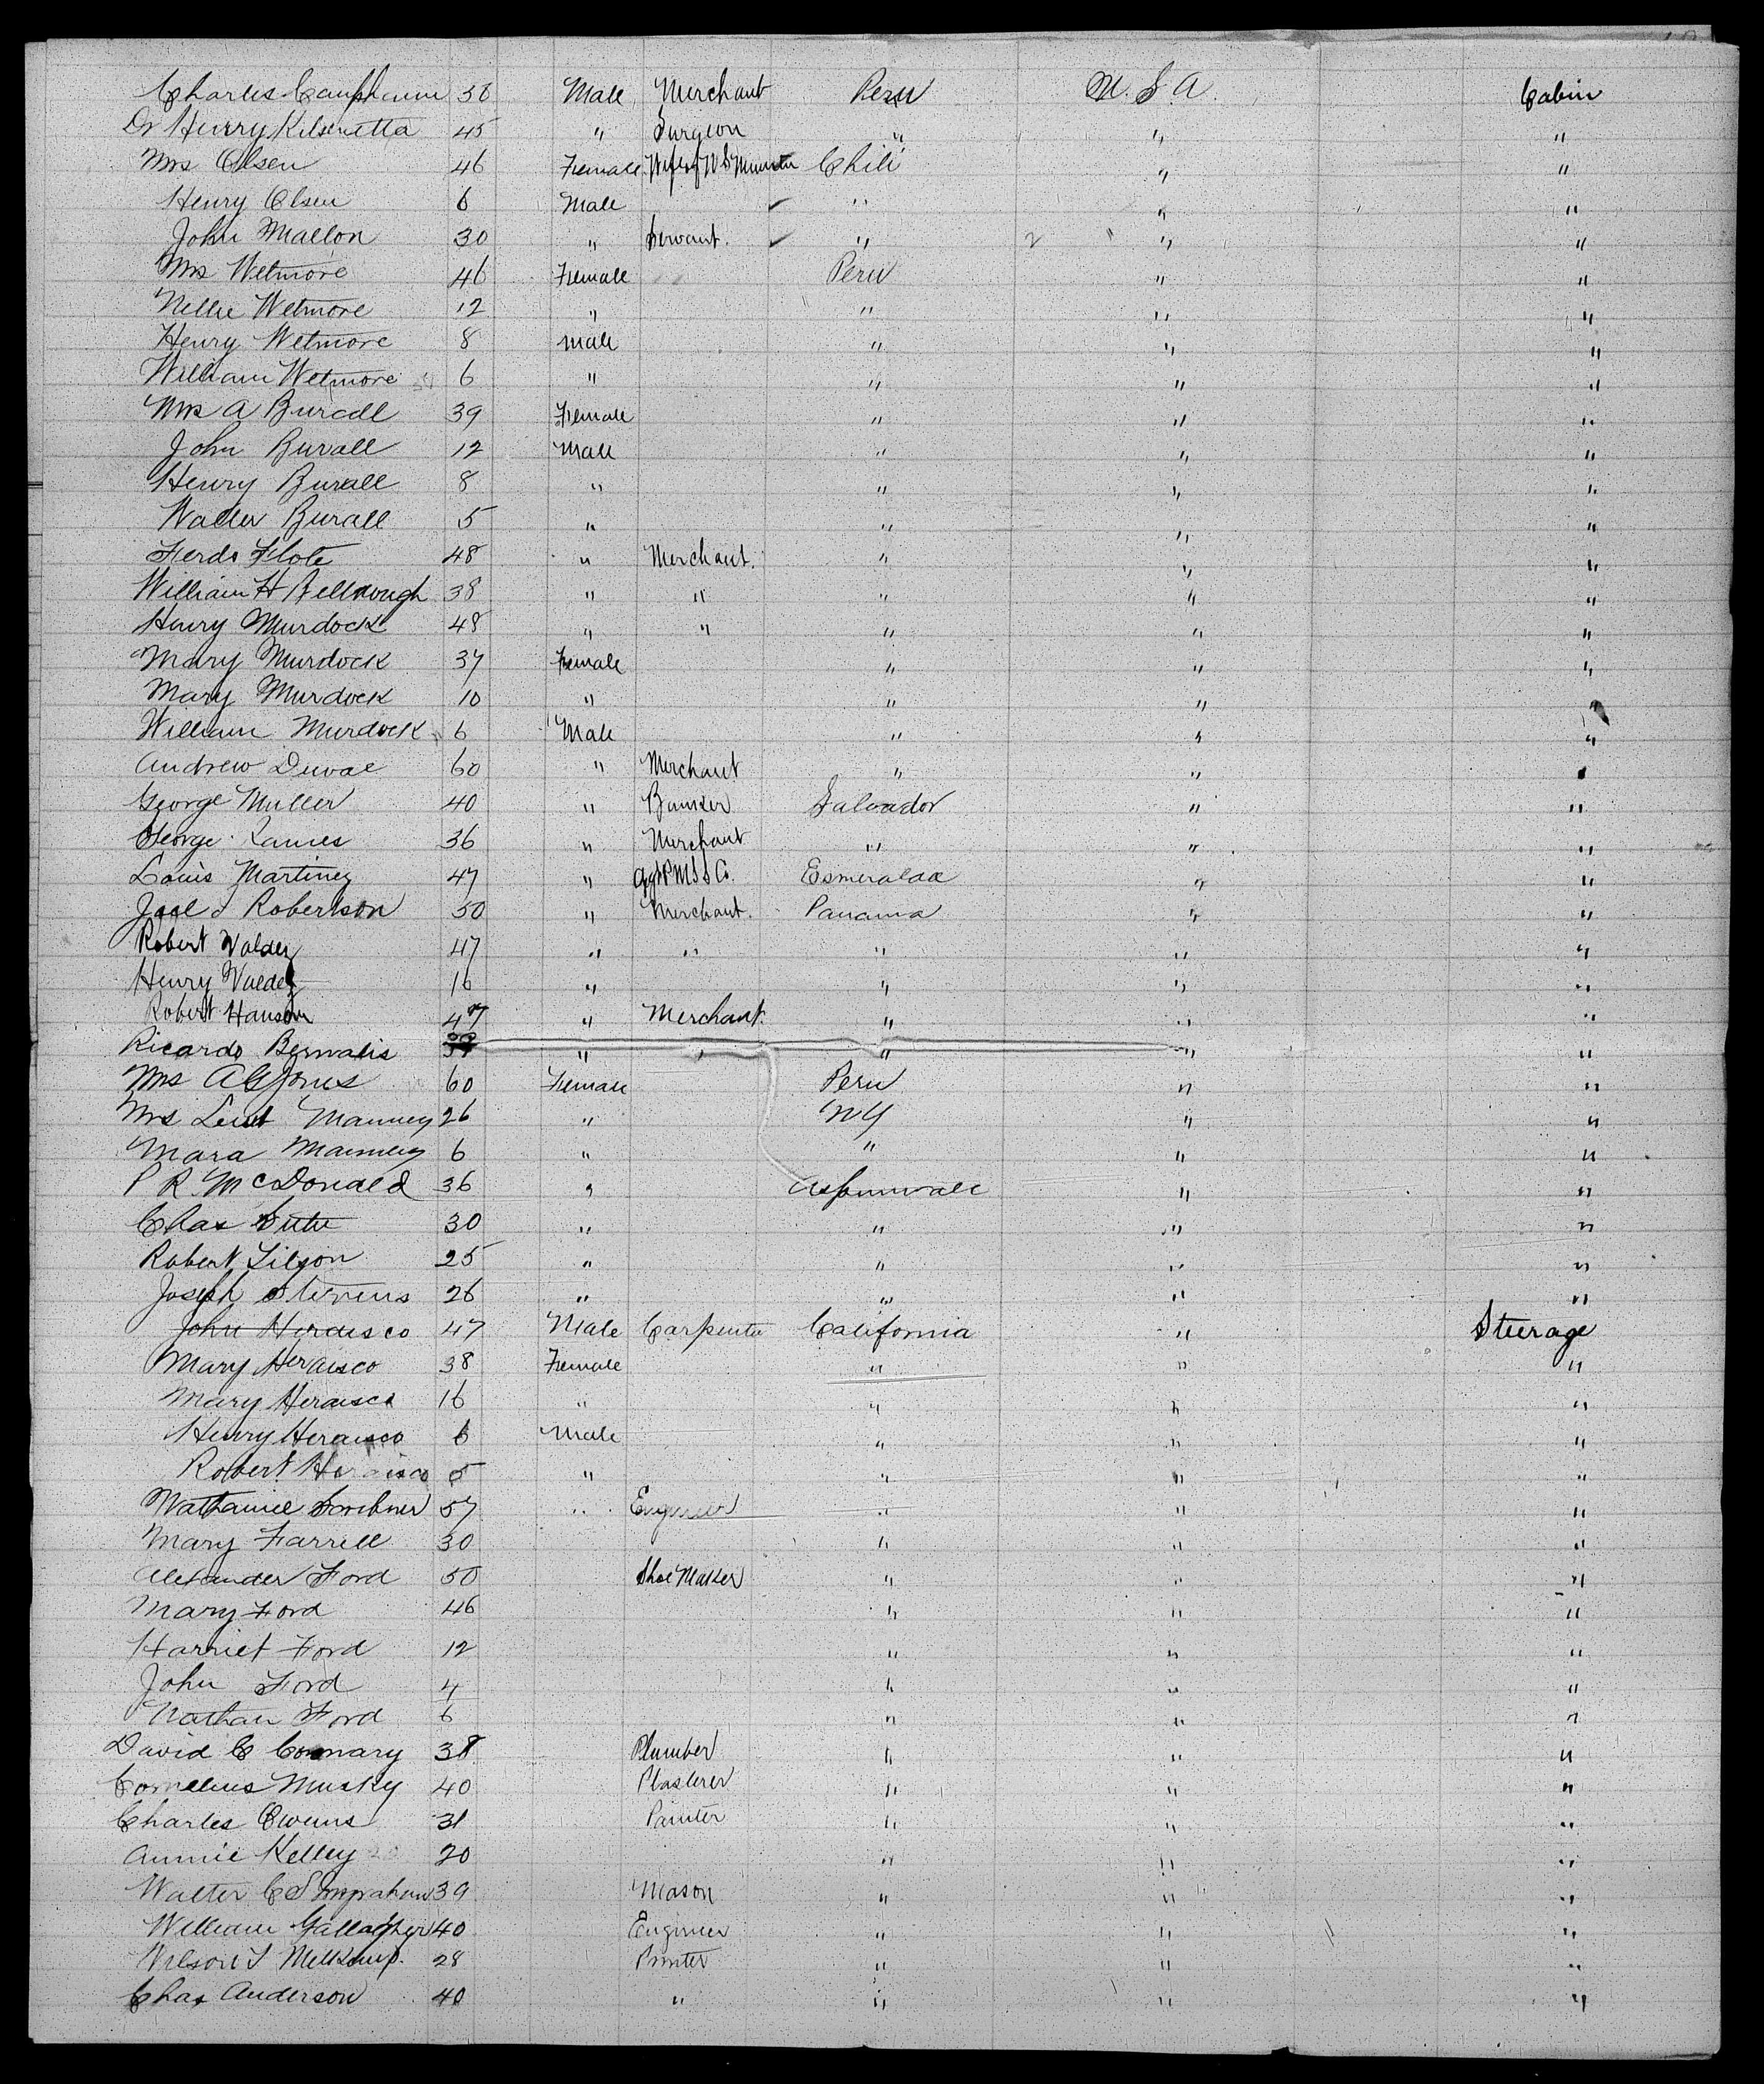 Charles 38 Male Merchant Peru U.S.A. Cabin
Dr Henry 45 " Surgeon " " "
Mrs Olsen 46 Female Wife of U S Minister Chili " "
Henry Olsen 6 Male " " "
John Mallon 30 " Servant. " " "
Mrs Wetmore 46 Female Peru " "
Nellie Wetmore 12 " " " "
Henry Wetmore 8 Male " " "
William Wetmore 6 " " " "
Mrs A Burall 39 Female " " "
John Burall 12 Male " " "
Henry Burall 8 " " " "
Walter Burall 5 " " " "
Ferdo Flote 48 " Merchant. " " "
William H 38 " " " " "
Henry Murdock 48 " " " " "
Mary Murdock 37 Female " " "
Mary Murdock 10 " " " "
William Murdock 6 Male " " "
Andrew Duval 60 " Merchant " " "
George Muller 40 " Banker Salvador " "
George 36 " Merchant " " "
Louis Martinez 47 " Agt P M S S Co. Esmeralda " "
Robertson 50 " Merchant. Panama " "
Robert Valdez 47 " " " " "
Henry Valdez 16 " " " "
Robert Hanson 47 " Merchant. " " "
Ricardo " " " " "
Mrs A G Jones 60 Female Peru " "
Mrs Leut Manney 26 " N Y " "
Mara Manney 6 " " " "
P R. McDonald 36 " Aspinwall " "
Chas 30 " " " "
Robert 25 " " " "
Joseph Stevens 26 " " " "
John Heraisco 47 Male Carpenter California " Steerage
Mary Heraisco 38 Female " " "
Mary Heraisco 16 " " " "
Henry Heraisco 6 Male " " "
Robert Heraisco 5 " " " "
Nathaniel Scribner 57 " Engineer " " "
Mary Farrell 30 " " "
Alexander Ford 50 Shoe Maker " " "
Mary Ford 46 " " "
Harriet Ford 12 " " "
John Ford 4 " " "
Nathan Ford 6 " " "
David C Connary 38 Plumber " " "
Cornelius Musky 40 Plasterer " " "
Charles Owens 31 Painter " " "
Annie Kelley 20 " " "
Walter C 39 Mason " " "
William Gallagher 40 Engineer " " "
Wilson S 28 Printer " " "
Chas Anderson 40 " " " "